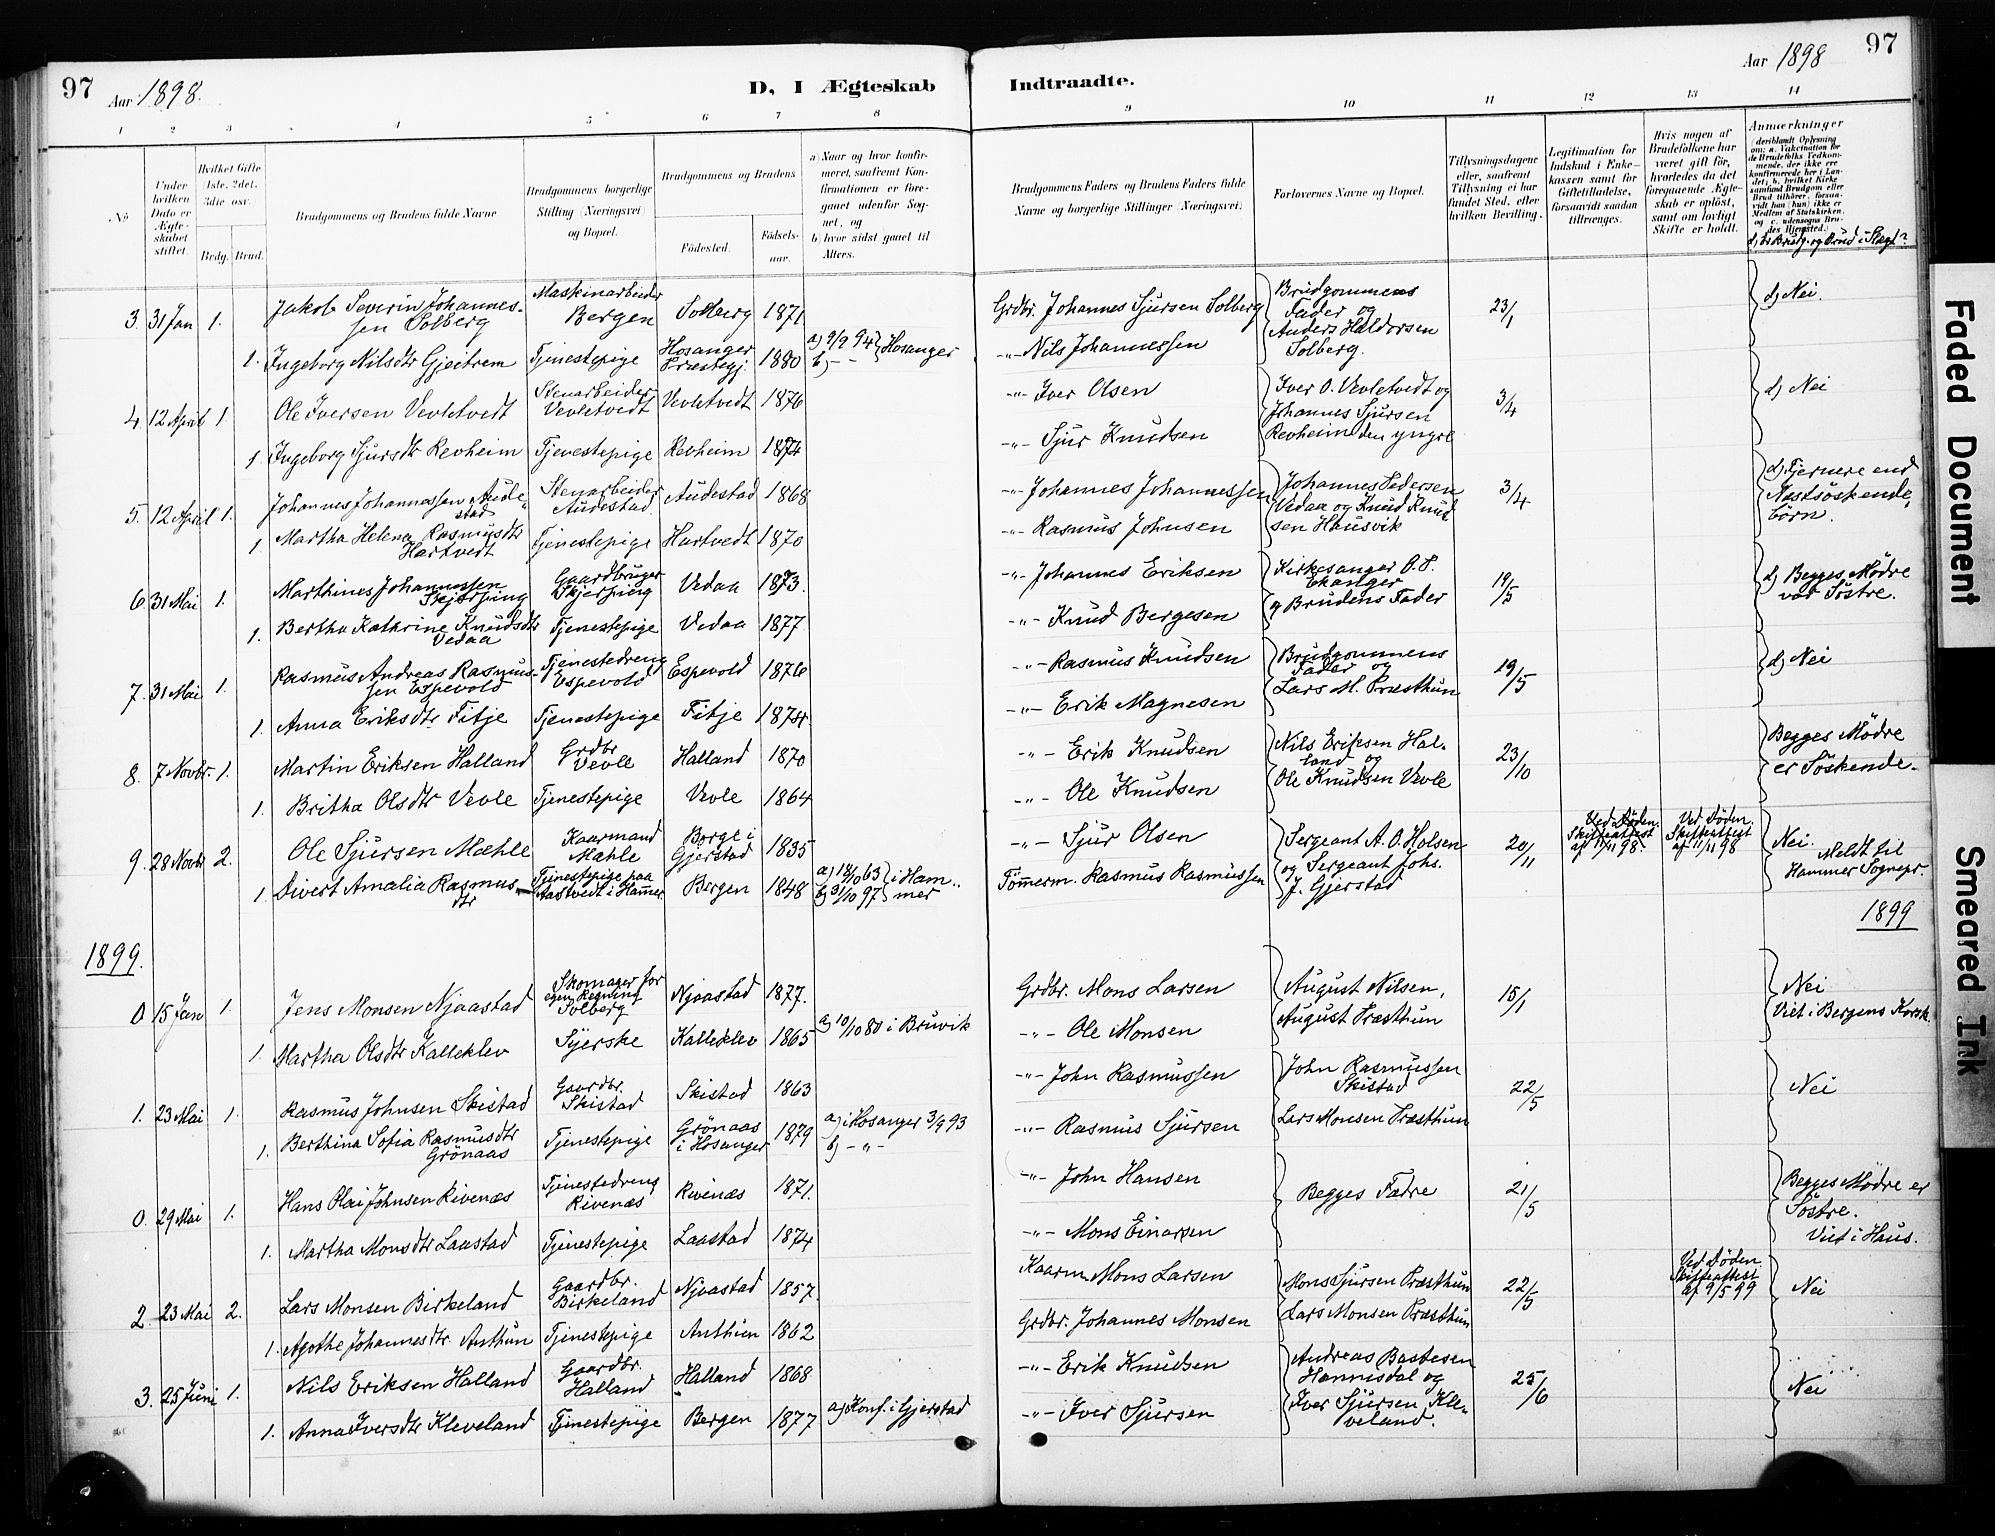 97 Aar 1898. D, I Ægteskab Indtraadte. Aar 1898 97
1 2 3 4 5 6 7 8 9 10 11 12 13 14
No
Under hvilken Dato er Ægteskabet stiftet.
Hvilket Gifte (1ste, 2det, 3die osv.)
Brdg. Brud.
Brudgommens og Brudens fulde Navne
Brudgommens borgerlige Stilling (Næringsvei) og Bopæl.
Brudgommens og Brudens
Födested. Födselsaar.
a) Naar og hvor konfirmeret, saafremt Konfirmationen er foregaaet udenfor Sognet, og
b) hvor sidst gaaet til Alters.
Brudgommens Faders og Brudens Faders fulde Navne og borgerlige Stillinger (Næringsvei)
Forlovernes Navne og Bopæl.
Tillysningsdagene eller, saafremt Tillysning ei har fundet Sted, efter hvilken Bevilling.
Legitimation for Indskud i Enkekassen samt for Giftetilladelse, forsaavidt saadan tiltrænges.
Hvis nogen af Brudefolkene har været gift för, hvorledes da det foregaaende Ægteskab er oplöst, samt om lovligt Skifte er holdt.
Anmærkninger
(deriblandt Oplysning om: a. Vakcination for de Brudefolks Vedkommende, der ikke ere konfirmerede her i Landet; b. hvilket Kirkesamfund Brudgom eller Brud tilhörer, forsaavidt han (hun) ikke er Medlem af Statskirken, og c. udensogns Brudes Hjemsted.)
d) Er Brudg. og Brud i Slægt?
3. 31 Jan 1. Jakob Severin Johannessen Solberg Maskinarbeider Bergen Solberg 1871 Grdbr. Johannes Sjursen Solberg Brudgommens Fader og Anders Haldorsen Solberg. 23/1 d) Nei.
1. Ingeborg Nilsdtr Gjeitrem Tjenestepige Hosanger Præstegj. 1880 a) 9/9 94 b) - - Hosanger -"- Nils Johannessen
4. 12 April 1. Ole Iversen Vevletvedt Stenarbeider Vevletvedt Vevletvedt 1876 -"- Iver Olsen Iver O. Vevletvedt og Johannes Sjursen Revheim den yngre 3/4 d) Nei
1 Ingeborg Sjursdtr Revheim Tjenestepige Revheim 1874 -"- Sjur Knudsen
5. 12 April 1. Johannes Johannessen Audestad Stenarbeider Audestad Audestad 1868 -"- Johannes Johannessen Johannes Pedersen Vedaa og Knud Knudsen Hausvik 3/4 d) Fjernere end Næstsöskendebörn.
1 Martha Helena Rasmusdtr Hartvedt Tjenestepige Hartvedt 1870 -"- Rasmus Johnsen
6. 31 Mai 1. Marthines Johannessen Skjerping Gaardbruger Skjerping Vedaa 1873. -"- Johannes Eriksen Kirkesanger O. P. Ekanger og Brudens Fader 19/5 d) Begges Mödre var Söstre.
1. Bertha Kathrine Knudsdtr Vedaa Tjenestepige Vedaa 1877 -"- Knud Bergesen
7. 31 Mai 1. Rasmus Andreas Rasmussen Espevold Tjenestedreng Espevold Espevold 1876 -"- Rasmus Knudsen Brudgommens Fader og Lars M. Præsthun 19/5 d) Nei
1. Anna Eriksdtr Fitje Tjenestepige Fitje 1874. -"- Erik Magnesen
8. 7 Novbr. 1. Martin Eriksen Halland Grdbr Vevle Halland 1870 -"- Erik Knudsen Nils Eriksen Halland og Ole Knudsen Vevle 23/10 Begges Mödre er Söskende.
1. Britha Olsdtr Vevle Tjenestepige Vevle 1864 -"- Ole Knudsen
9. 28 Novbr 2. Ole Sjursen Mæhle Kaarmand Mæhle Borge i Gjerstad 1835 -"- Sjur Olsen Sergeant A. O. Holsen og Sergeant Johs. J. Gjerstad 20/11 Ved Döden. Skifteattest af 11/11 98. Ved Döden. Skifteattest af 11/11 98 Nei. Meldt til Hammer Sognepr.
1. Divert Amalia Rasmusdtr Tjenestepige paa Aastvedt i Hamner. Bergen 1848 a) 18/10 63 b) 31/10 97 i Hammer Tömmerm. Rasmus Rasmussen
1899. 1899
0 15 Jan 1. Jens Monsen Njaastad Skomager for egen Regning Solberg Njaastad 1877. Grdbr. Mons Larsen August Nilsen, August Præsthun 15/1 Nei Viet i Bergens Korsk.
1. Martha Olsdtr Kalleklev Syerske Kalleklev 1865 a) 10/10 80 i Bruvik -"- Ole Monsen
1. 23 Mai 1. Rasmus Johnsen Skistad Gaardbr. Skistad Skistad 1863 -"- John Rasmussen John Rasmussen Skistad Lars Monsen Præsthun 22/5 Nei
1. Berthina Sofia Rasmusdtr Grönaas Tjenestepige Grönaas i Hosanger 1879 a) i Hosanger 3/9 93 b) - " - -"- Rasmus Sjursen
0. 29 Mai 1. Hans Olai Johnsen Rivenæs Tjenestedreng Rivenæs Rivenæs 1871. -"- John Hansen Begges Fædre 21/5 Begges Mödre er Söstre. Viet i Haus.
1. Martha Monsdtr Laastad Tjenestepige Laastad 1874 -"- Mons Einarsen
2 23 Mai 2. Lars Monsen Birkeland Gaardbr. Birkeland Njaastad 1857. Kaarm. Mons Larsen Mons Sjursen Præsthun Lars Monsen Præsthun 22/5 Ved Döden Skifteattest af 9/5 99 Nei
1. Agothe Johannesdtr. Anthun Tjenestepige Anthun 1862 Grdbr. Johannes Monsen
3. 25 Juni 1. Nils Eriksen Halland Gaardbr. Halland Halland 1868 -"- Erik Knudsen Andreas Bastesen Hannisdal og Iver Sjursen Kleveland. 25/6 Nei
1. Anna Iversdtr Kleveland Tjenestepige Bergen 1877 a) Konf. i Gjerstad -"- Iver Sjursen
Faded Document
Smeared Ink